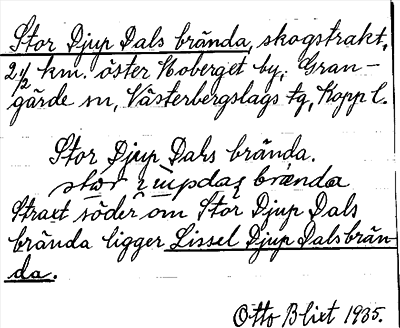 Stor Djup Dals brända, skogstrakt,
2 1/2 km. öster Hoberget by, Gran-
gärde sn, Västerbergslags tg, Kopp l.
Stor Djup Dals brända.
brända
Straxt söder om Stor Djup Dals
brända ligger Lissel Djup Dals brän-
da.
Otto Blixt 1935.